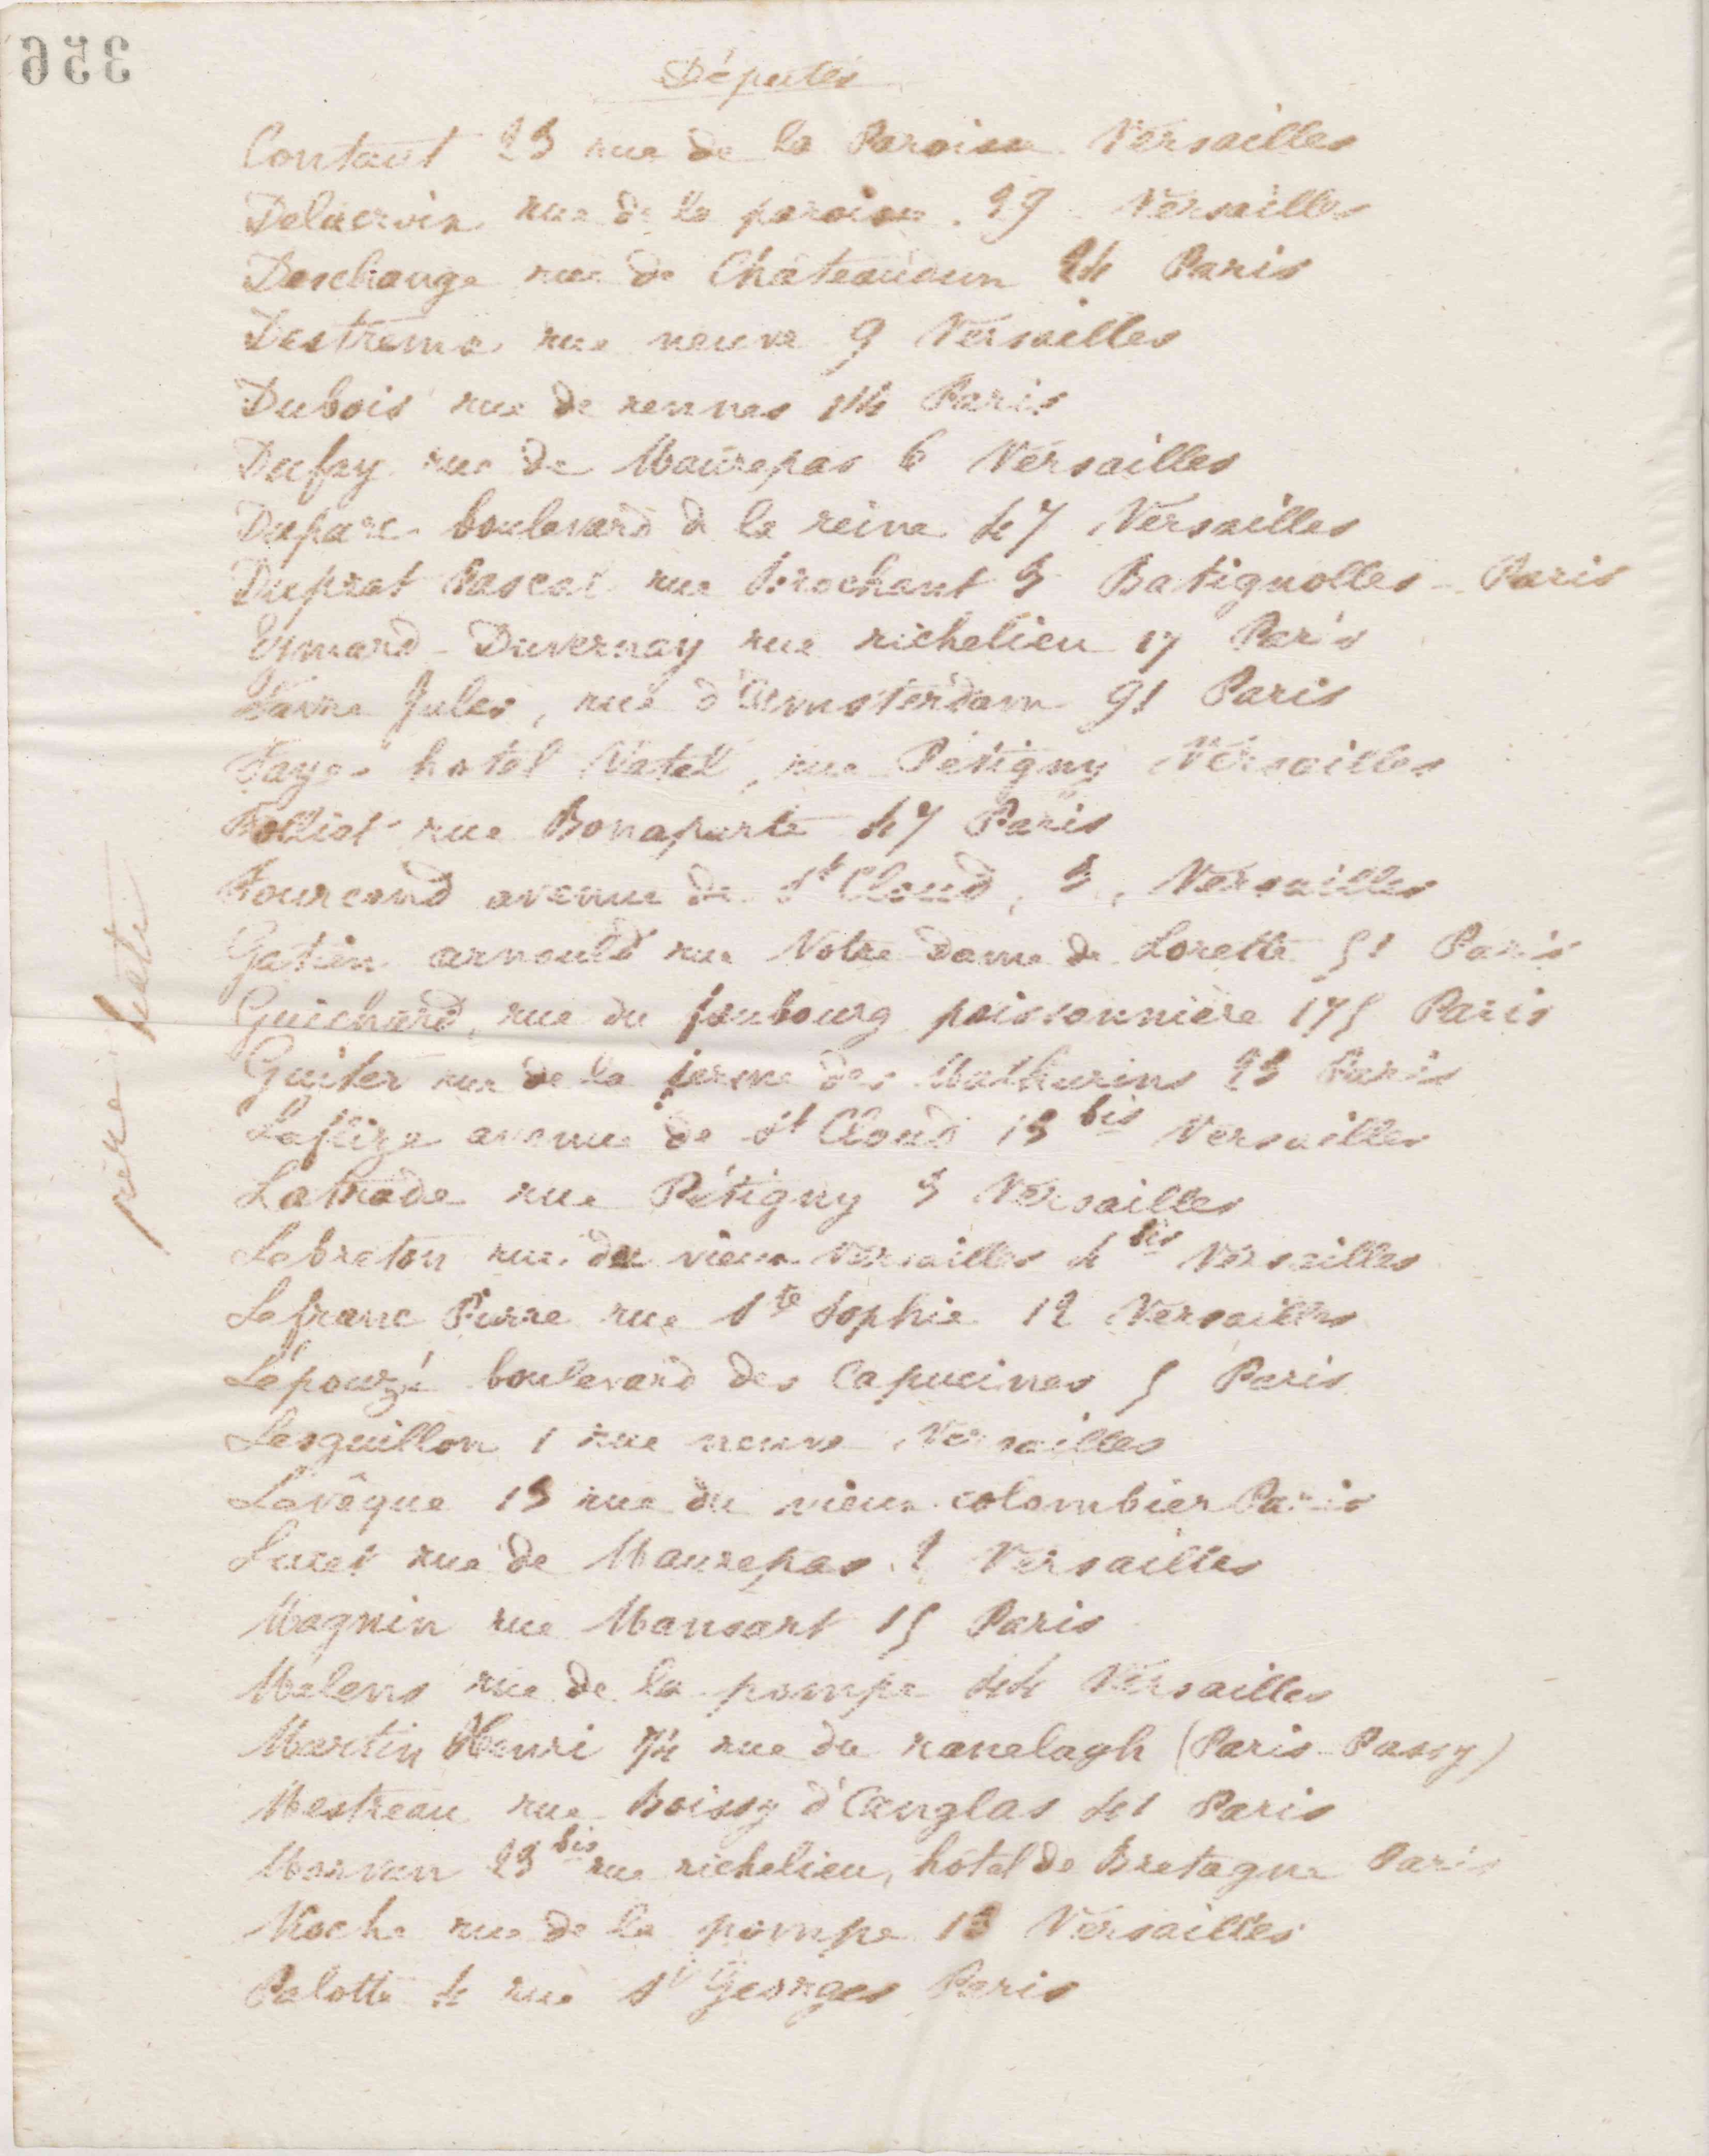 356
Députés
Contaut 23 rue de la Paroisse Versailles
Delacroix rue de la paroisse. 29 Versailles
Deschange rue de Châteaudun 24 Paris
Destremx rue neuve 9 Versailles
Dubois rue de rennes 114 Paris
Dufay rue de Maurepas 6 Versailles
Duparc boulevard de la reine 47 Versailles
Duprat Pascal rue Brochant 3 Batignolles - Paris
Eymard-Duvernay rue richelieu 17 Paris
Favre Jules, rue d'Amsterdam 91 Paris
Faye hotel Vatel, rue Pétigny Versailles
Folliot rue Bonaparte 47 Paris
Fourcand avenue de St Cloud, 3, Versailles
Gatien arnould rue Notre Dame de Lorette 51 Paris
Guichard, rue du faubourg poissonnière 175 Paris
Guiter rue de la ferme des Mathurins 23 Paris
Laflize avenue de St Cloud 13 bis Versailles
Latrade rue Pétigny 3 Versailles
Lebreton rue du vieux Versailles 4 bis Versailles
Lefranc Pierre rue Ste Sophie 12 Versailles
Lépouzé boulevard des Capucines 5 Paris
Lesguillon 1 rue neuve Versailles
Levêque 13 rue du vieux colombier Paris
Lucet rue de Maurepas 2 Versailles
Magnin rue Mansart 15 Paris
Malens rue de la pompe 44 Versailles
Martin Henri 74 rue du ranelagh (Paris-Passy)
Mestreau rue Boissy d'Anglas 41 Paris
Morvan 23 bis rue richelieu, hôtel de Bretagne Paris
Noche rue de la pompe 13 Versailles
Palotte 4 rue St Georges Paris